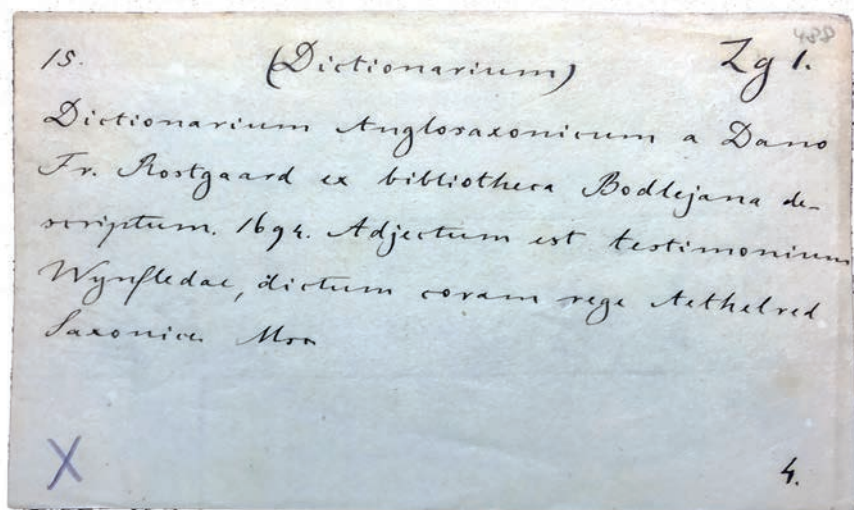 488
15. (Dictionarium) Zg 1.
Dictionarium Anglosaxonicum a Dano
Fr. Rostgaard ex bibliotheca Bodlejana de-
scriptum. 1694. Adjectum est testimonium
Wynfledae, dictum coram rege Aethelred
Saxonice. Msc
X 4.